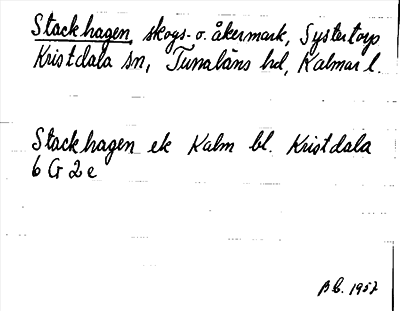 Stackhagen, skogs- o. åkermark, Systertorp
Kristdala sn, Tunaläns hd, Kalmar l.
Stackhagen ek Kalm bl. Kristdala
6 G 2 e
B b. 1957